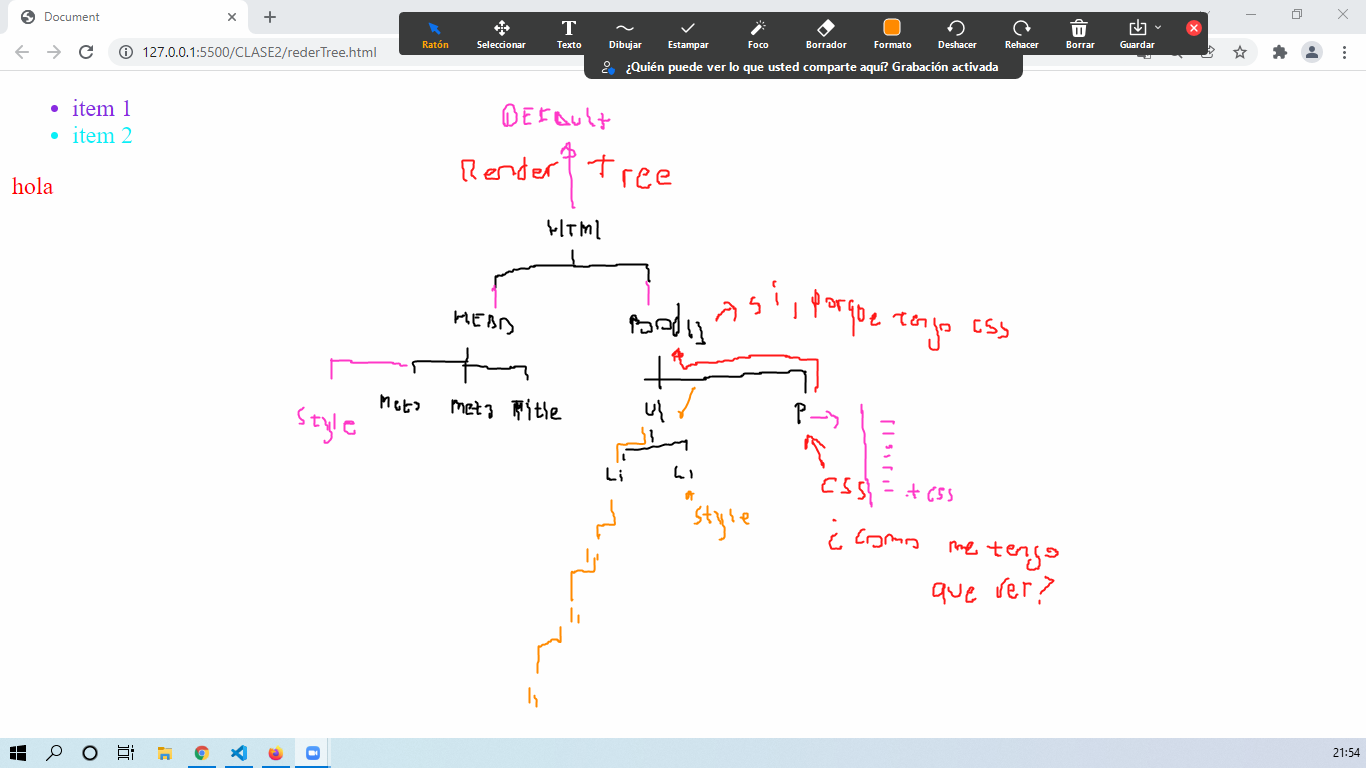 Document
127.0.0.1:5500/CLASE2/rederTree.html
Ratón Seleccionar Texto Dibujar Estampar Foco Borrador Formato Deshacer Rehacer Borrar Guardar
¿Quién puede ver lo que usted comparte aquí? Grabación activada
item 1
item 2
hola
DEFAult
Render Tree
HTMl
HEAD Body si, porque tengo CSS
Style Meta Meta Title Ul P
Li Li
CSS + CSS
Style
¿ como me tengo
que ver?
li
li
li
21:54